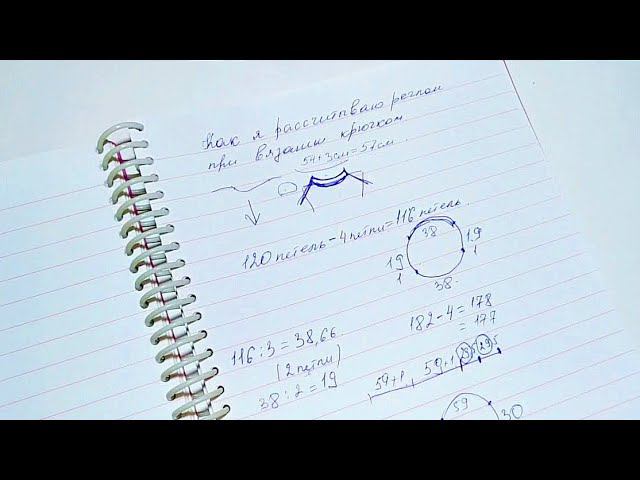 Как я рассчитываю реглан
при вязании крючком
54+3см=57см
120 петель-4петли=116 петель.
38
19
19
1
1
38
182-4=178
=177
116:3=38,66
(2петли)
38:2=19
59+1
59+1
29,5
59
30